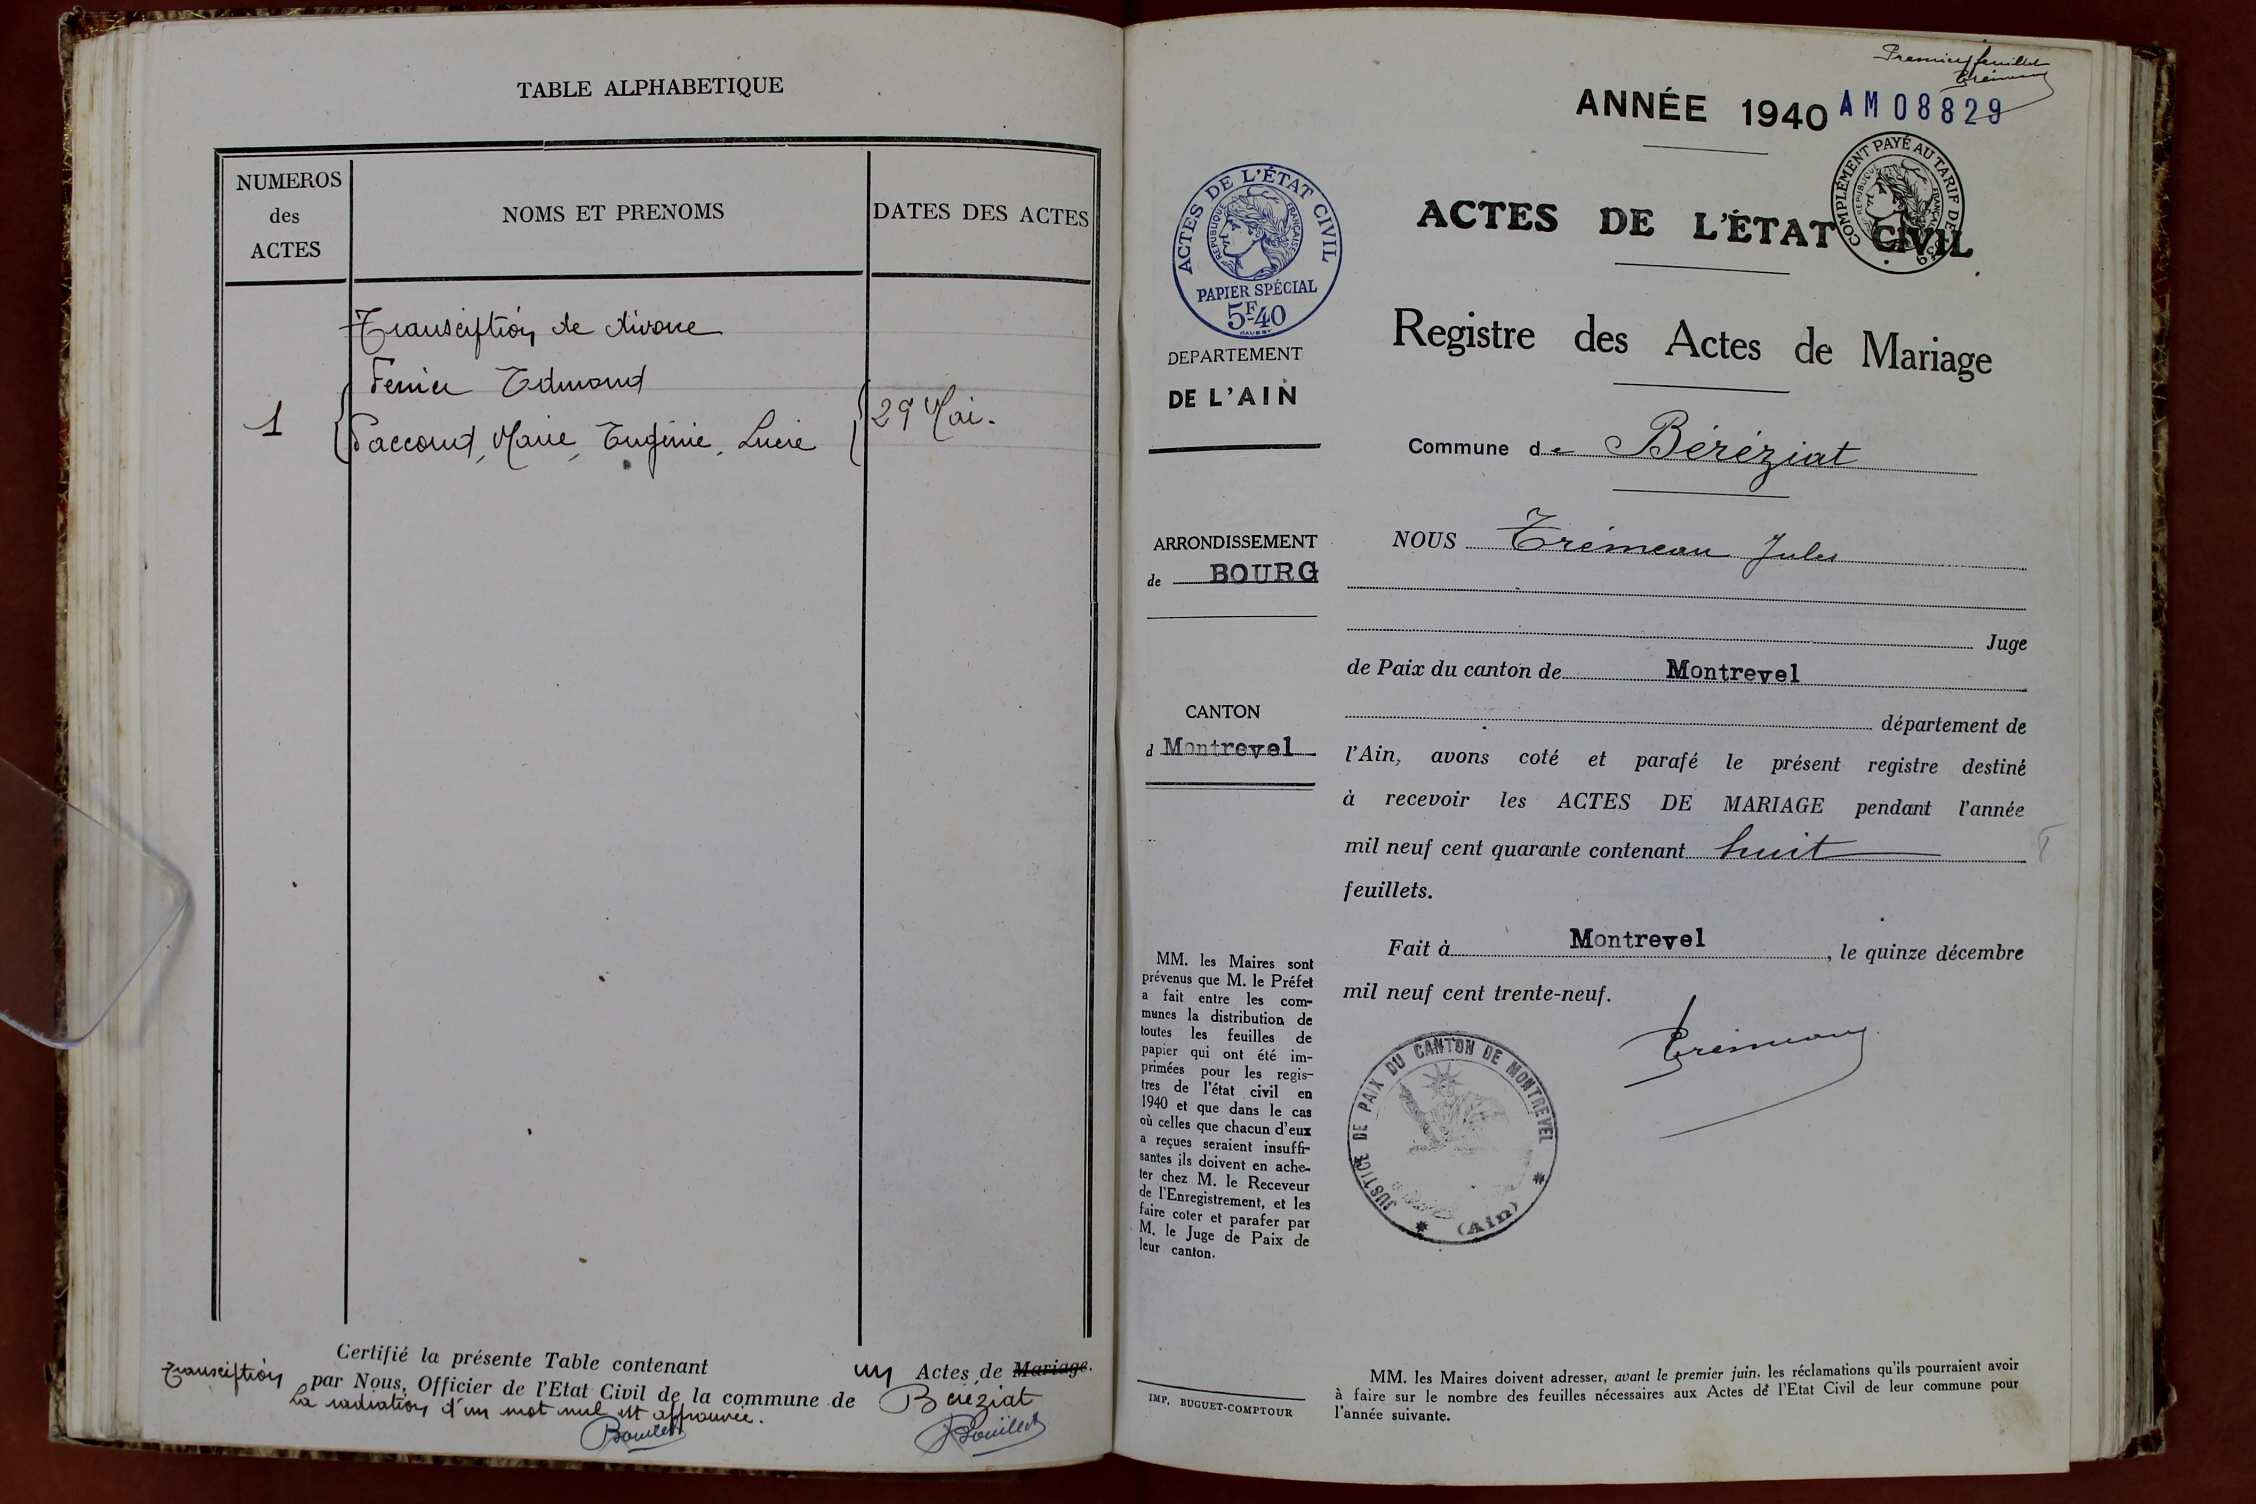 TABLE ALPHABETIQUE
NUMEROS
des
ACTES
NOMS ET PRENOMS
DATES DES ACTES
Transciption de divorce
Ferrier Edmond
1
Paccoud, Marie, Eugénie, Lucie
29 Mai.
Certifié la présente Table contenant un Actes de Mariage.
Transciption
par Nous, Officier de l'Etat Civil de la commune de Béréziat
La radiation d'un mot nul est approuvée.
Bouillet
Bouillet
Premier feuillet
Trémeau
ANNÉE 1940
AM 08829
ACTES DE L'ÉTAT CIVIL
RÉPUBLIQUE FRANÇAISE
PAPIER SPÉCIAL
5F40
COMPLÉMENT PAYÉ AU TARIF DE
RÉPUBLIQUE FRANÇAISE
ACTES DE L'ÉTAT CIVIL
Registre des Actes de Mariage
DEPARTEMENT
DE L'AIN
Commune de Béréziat
ARRONDISSEMENT
de BOURG
NOUS Trémeau Jules
Juge
de Paix du canton de Montrevel
département de
CANTON
d Montrevel
l'Ain, avons coté et parafé le présent registre destiné
à recevoir les ACTES DE MARIAGE pendant l'année
mil neuf cent quarante contenant huit
feuillets.
Fait à Montrevel, le quinze décembre
mil neuf cent trente-neuf.
Trémeau
JUSTICE DE PAIX DU CANTON DE MONTREVEL
(Ain)
MM. les Maires sont
prévenus que M. le Préfet
a fait entre les com-
munes la distribution de
toutes les feuilles de
papier qui ont été im-
primées pour les regis-
tres de l'état civil en
1940 et que dans le cas
où celles que chacun d'eux
a reçues seraient insuffi-
santes ils doivent en ache-
ter chez M. le Receveur
de l'Enregistrement, et les
faire coter et parafer par
M. le Juge de Paix de
leur canton.
IMP. BUGUET-COMPTOUR
MM. les Maires doivent adresser, avant le premier juin, les réclamations qu'ils pourraient avoir
à faire sur le nombre des feuilles nécessaires aux Actes de l'Etat Civil de leur commune pour
l'année suivante.